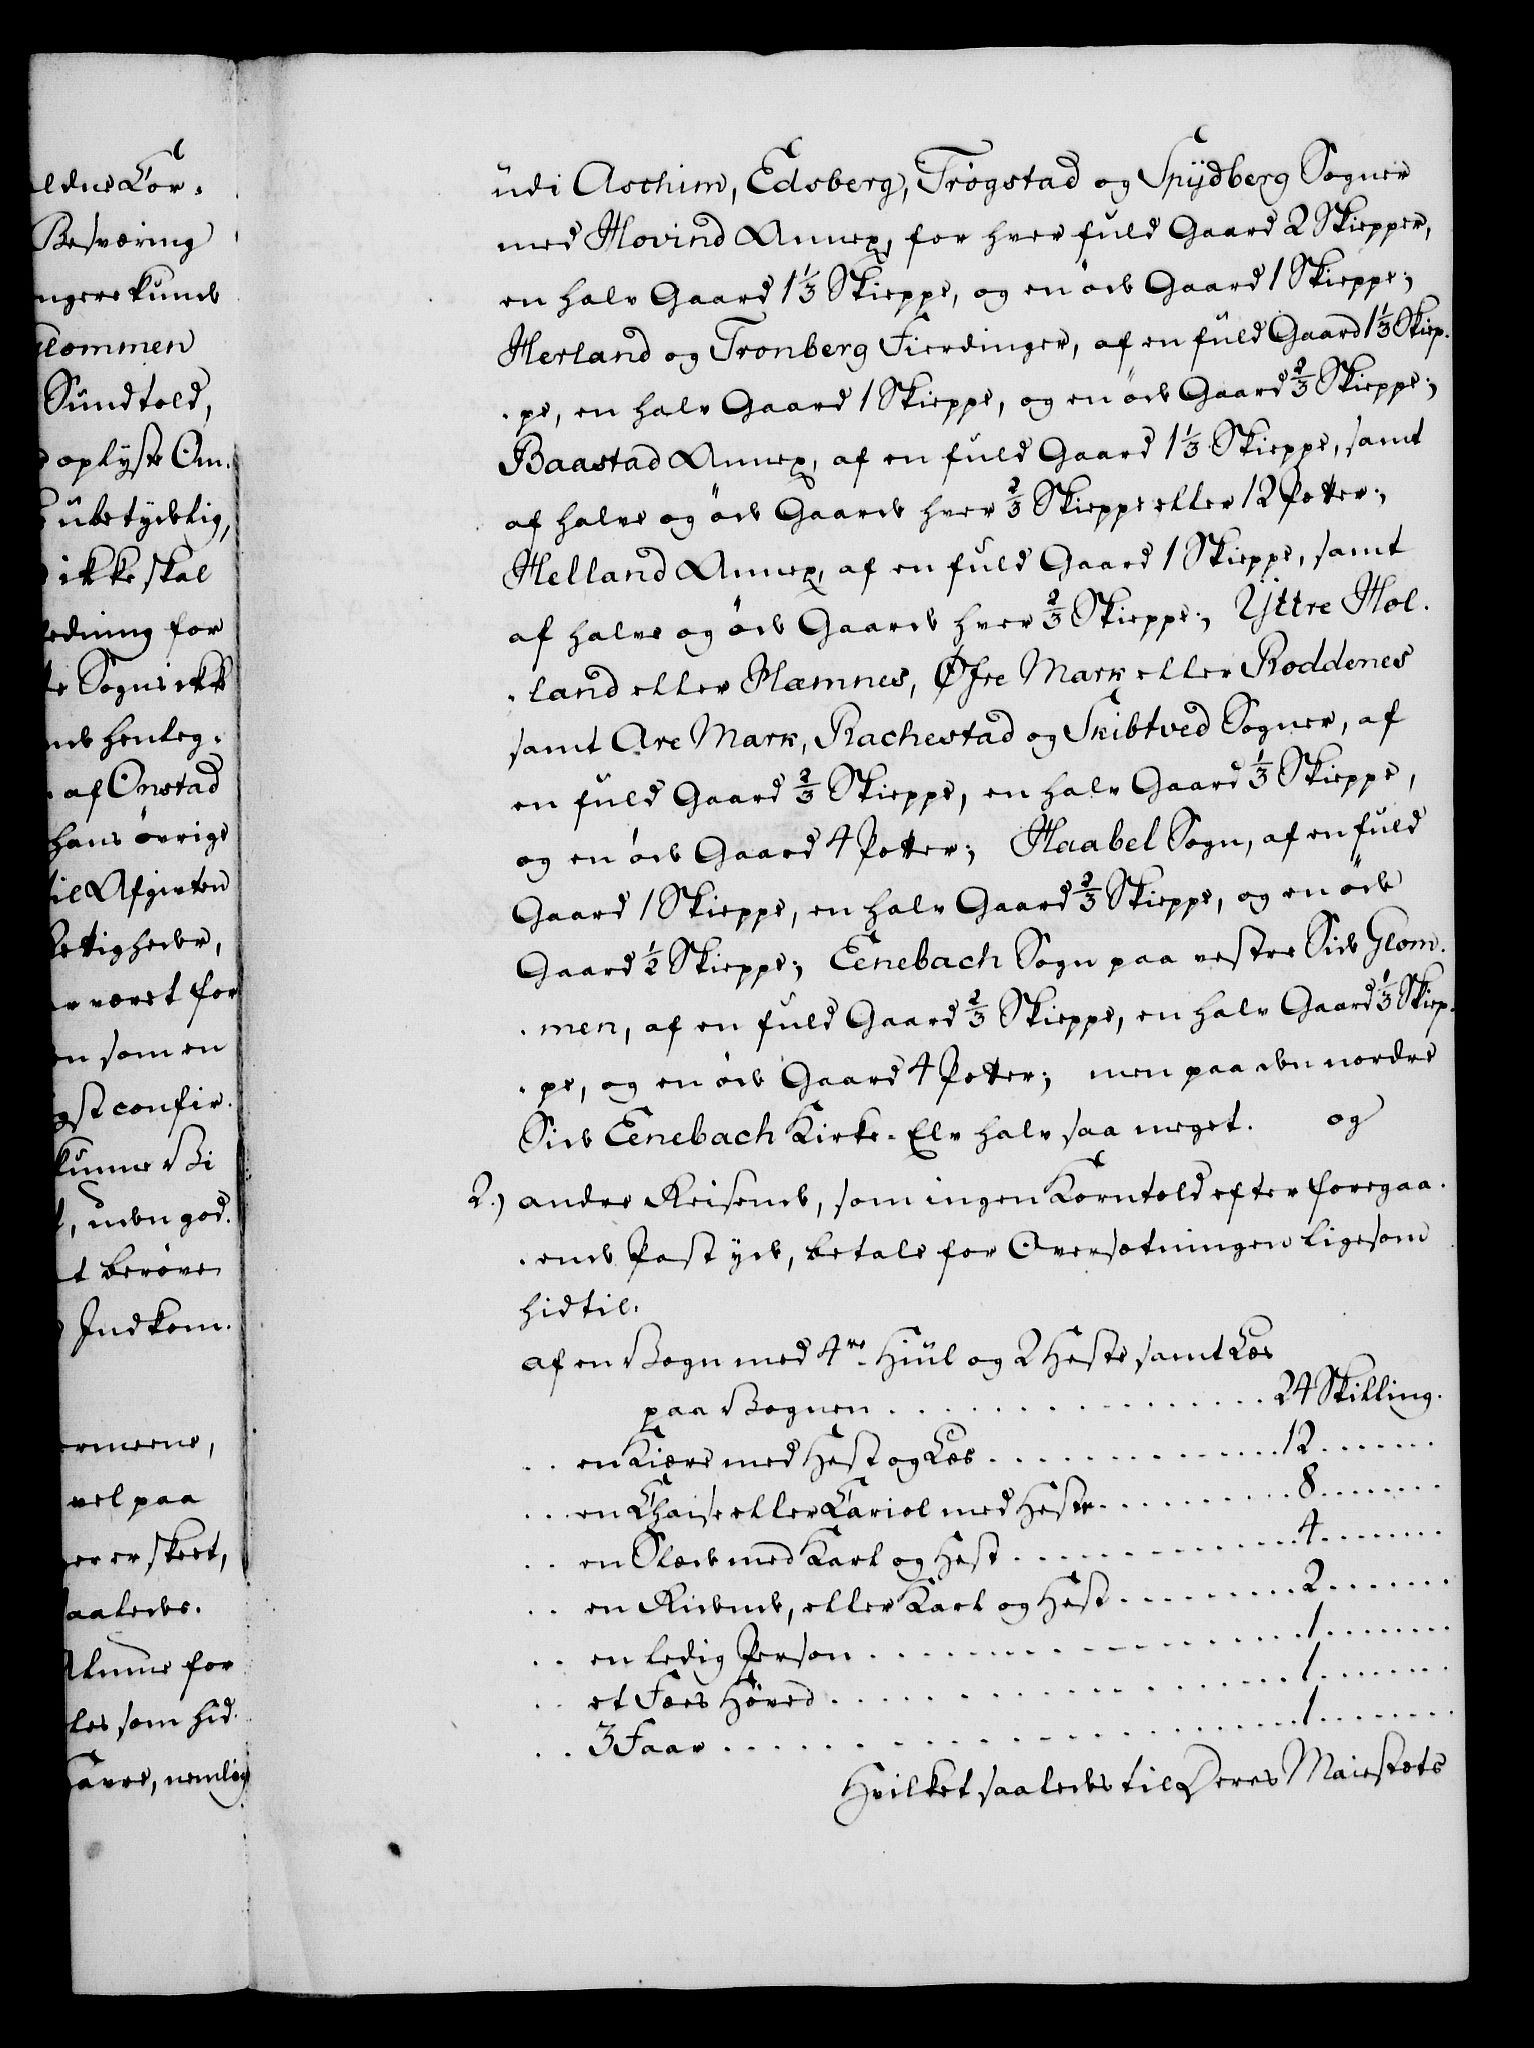 eldne Cor-
Besværing
ngere kunde
Glommen
Sundtold,
oplyste Om-
ubetydelig,
ikke skal
edning for
Sogns
nde henleg-
af Onstad
hans øvrige
til Afgivten
ettigheder,
været for
en som en
gst confir-
kunne Bi
, uden god-
t berøve
Indkom-
ermeene,
vel paa
er er skeet,
saaledes.
Alene for
les som hid-
Havre, nemlig
udi Aschim, Edsberg, Trögstad og Spydberg Sogner
med Hovind Annex, for hver fuld Gaard 2 Skiepper,
en halv Gaard 1 1/3 Skieppe, og en öde Gaard 1 Skieppe;
Herland og Tronberg Fierdinger, af en fuld Gaard 1 1/3 Skiep-
-pe, en halv Gaard 1 Skieppe, og en öde Gaard 2/3 Skieppe;
Baastad Annex, af en fuld Gaard 1 1/3 Skieppe, samt
af halve og öde Gaarde hver 2/3 Skieppe eller 12 Potter;
Helland Annex, af en fuld Gaard 1 Skieppe, samt
af halve og öde Gaarde hver 2/3 Skieppe; Yttre Hol-
-land eller Hæmnes, Øfre Mark eller Roddenes
samt Are Mark, Rachestad og Skibtved Sogner, af
en fuld Gaard 2/3 Skieppe, en halv Gaard 1/3 Skieppe,
og en öde Gaard 4 Potter; Haabel Sogn, af en fuld
Gaard 1 Skieppe, en halv Gaard 2/3 Skieppe, og en öde
Gaard 1/2 Skieppe; Eenebach Sogn paa vestre Side Glom-
-men, af en fuld Gaard 2/3 Skieppe, en halv Gaard 1/3 Skiep-
-pe, og en öde Gaard 4 Potter; men paa den nordre
Side Eenebach Kirke-Elv halv saa meget. og
2.) andre Reisende, som ingen Korntold efter foregaa-
-ende Post yde, betale for Oversætningen ligesom
hidtil.
af en Vogn med 4re Hiul og 2 Heste samt Læs
paa Vognen . . . . . . . . . . 24 Skilling.
. . en Kiære med Hest og Læs . . . . . . . . . . 12 . . . . . .
. . en Chaise eller Cariol med Heste . . . . . . . . . . 8 . . . . . .
. . en Slæde med Karl og Hest . . . . . . . . . . 4 . . . . . .
. . en Ridende, eller Karl og Hest . . . . . . . . . . 2 . . . . . .
. . en ledig Person . . . . . . . . . . 1 . . . . . .
. . et Fæes Höved . . . . . . . . . . 1 . . . . . .
. . 3 Faar . . . . . . . . . . 1 . . . . . .
Hvilket saaledes til Deres Maiestæts